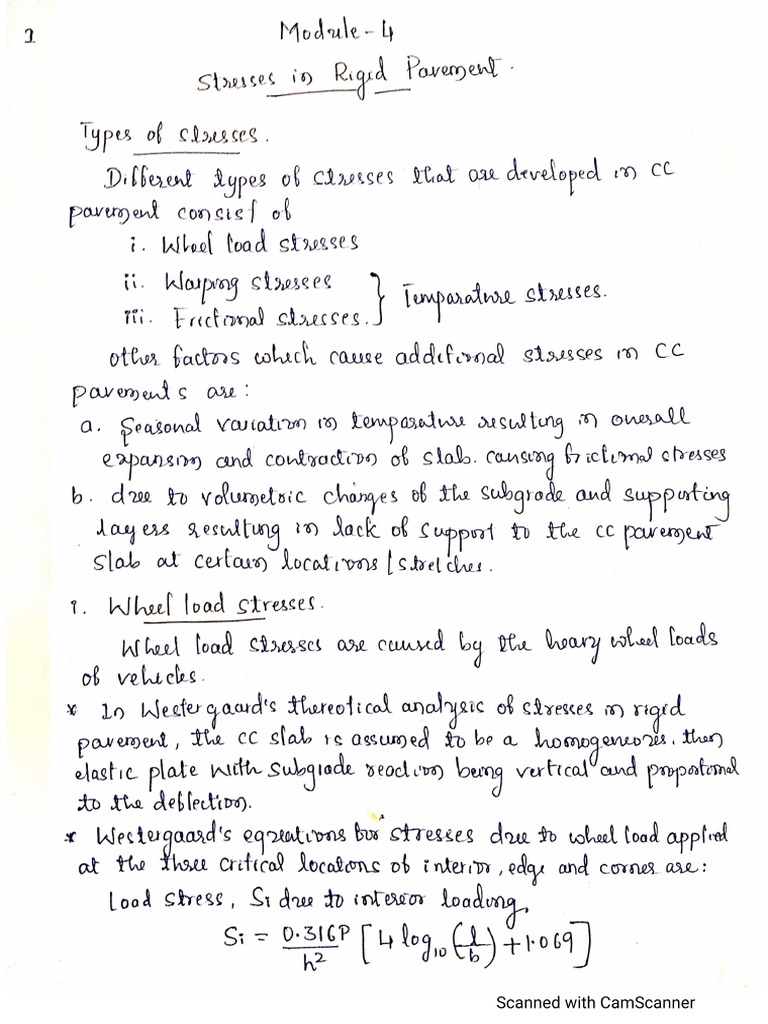 1
Module-4
Stresses in Rigid Pavement.
Types of stresses.
Different types of stresses that are developed in CC
pavement consist of
i. Wheel load stresses
ii. Warping stresses
iii. Frictional stresses. } Temparature stresses.
other factors which cause additional stresses in CC
pavements are:
a. Seasonal variation in temparature resulting in overall
expansion and contraction of slab. causing frictional stresses
b. due to volumetric changes of the subgrade and supporting
layers resulting in lack of support to the cc pavement
slab at certain locations/stretches.
1. Wheel load stresses.
Wheel load stresses are caused by the heavy wheel loads
of vehicles.
* In Westergaard's thereotical analysis of stresses in rigid
pavement, the cc slab is assumed to be a homogeneous, then
elastic plate with subgrade reaction being vertical and proportional
to the deflection.
* Westergaard's equations for stresses due to wheel load applied
at the three critical locations of interior, edge and corner are:
Load stress, Si due to interior loading,
Si = 0.316P/h² [4 log₁₀(l/b) + 1.069]
Scanned with CamScanner